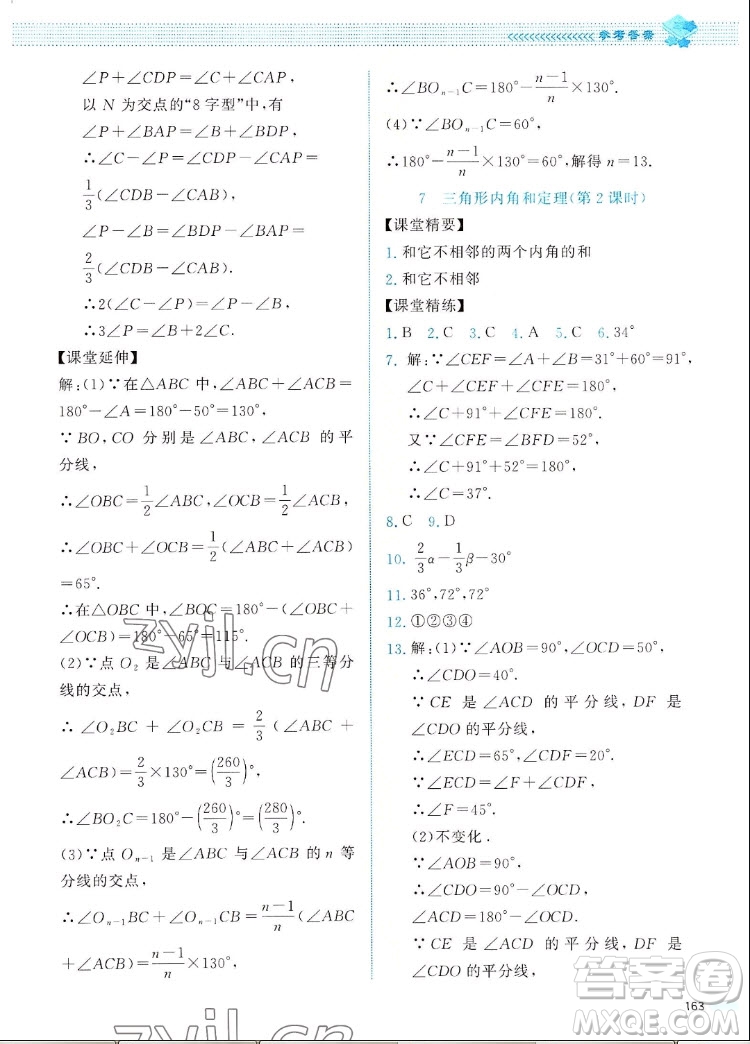 参考答案
∠P+∠CDP=∠C+∠CAP,
以 N 为交点的“8 字型”中,有
∠P+∠BAP=∠B+∠BDP,
∴∠C-∠P=∠CDP-∠CAP=
1/3(∠CDB-∠CAB),
∠P-∠B=∠BDP-∠BAP=
2/3(∠CDB-∠CAB).
∴2(∠C-∠P)=∠P-∠B.
∴3∠P=∠B+2∠C.
【课堂延伸】
解:(1)∵在△ABC 中,∠ABC+∠ACB=
180°-∠A=180°-50°=130°,
∵BO,CO 分别是∠ABC,∠ACB 的平
分线,
∴∠OBC=1/2∠ABC,∠OCB=1/2∠ACB,
∴∠OBC+∠OCB=1/2(∠ABC+∠ACB)
=65°.
∴在△OBC 中,∠BOC=180°-(∠OBC+
∠OCB)=180°-65°=115°.
(2)∵点 O₂ 是∠ABC 与∠ACB 的三等分
线的交点,
∴∠O₂BC+∠O₂CB=2/3(∠ABC+
∠ACB)=2/3×130°=(260/3)°,
∴∠BO₂C=180°-(260/3)°=(280/3)°.
(3)∵点 Oₙ₋₁ 是∠ABC 与∠ACB 的 n 等
分线的交点,
∴∠Oₙ₋₁BC+∠Oₙ₋₁CB=(n-1)/n(∠ABC
+∠ACB)=(n-1)/n×130°,
∴∠BOₙ₋₁C=180°-(n-1)/n×130°.
(4)∵∠BOₙ₋₁C=60°,
∴180°-(n-1)/n×130°=60°,解得 n=13.
7 三角形内角和定理(第 2 课时)
【课堂精要】
1. 和它不相邻的两个内角的和
2. 和它不相邻
【课堂精练】
1. B 2. C 3. C 4. A 5. C 6. 34°
7. 解:∵∠CEF=∠A+∠B=31°+60°=91°,
∠C+∠CEF+∠CFE=180°,
∴∠C+91°+∠CFE=180°.
又∵∠CFE=∠BFD=52°,
∴∠C+91°+52°=180°,
∴∠C=37°.
8. C 9. D
10. 2/3α-1/3β-30°
11. 36°,72°,72°
12. ①②③④
13. 解:(1)∵∠AOB=90°,∠OCD=50°,
∴∠CDO=40°.
∵CE 是∠ACD 的平分线,DF 是
∠CDO 的平分线,
∴∠ECD=65°,∠CDF=20°.
∵∠ECD=∠F+∠CDF,
∴∠F=45°.
(2)不变化.
∵∠AOB=90°,
∴∠CDO=90°-∠OCD,
∠ACD=180°-∠OCD.
∵CE 是∠ACD 的平分线,DF 是
∠CDO 的平分线,
163
zyjl.cn
zyjl.cn
答案圈
MXQE.COM